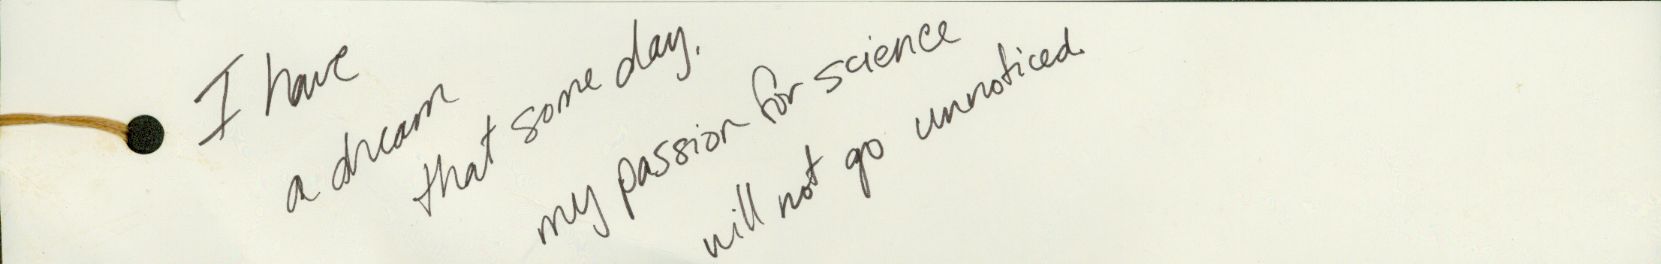 I have
a dream
that some day,
my passion for science
will not go unnoticed.